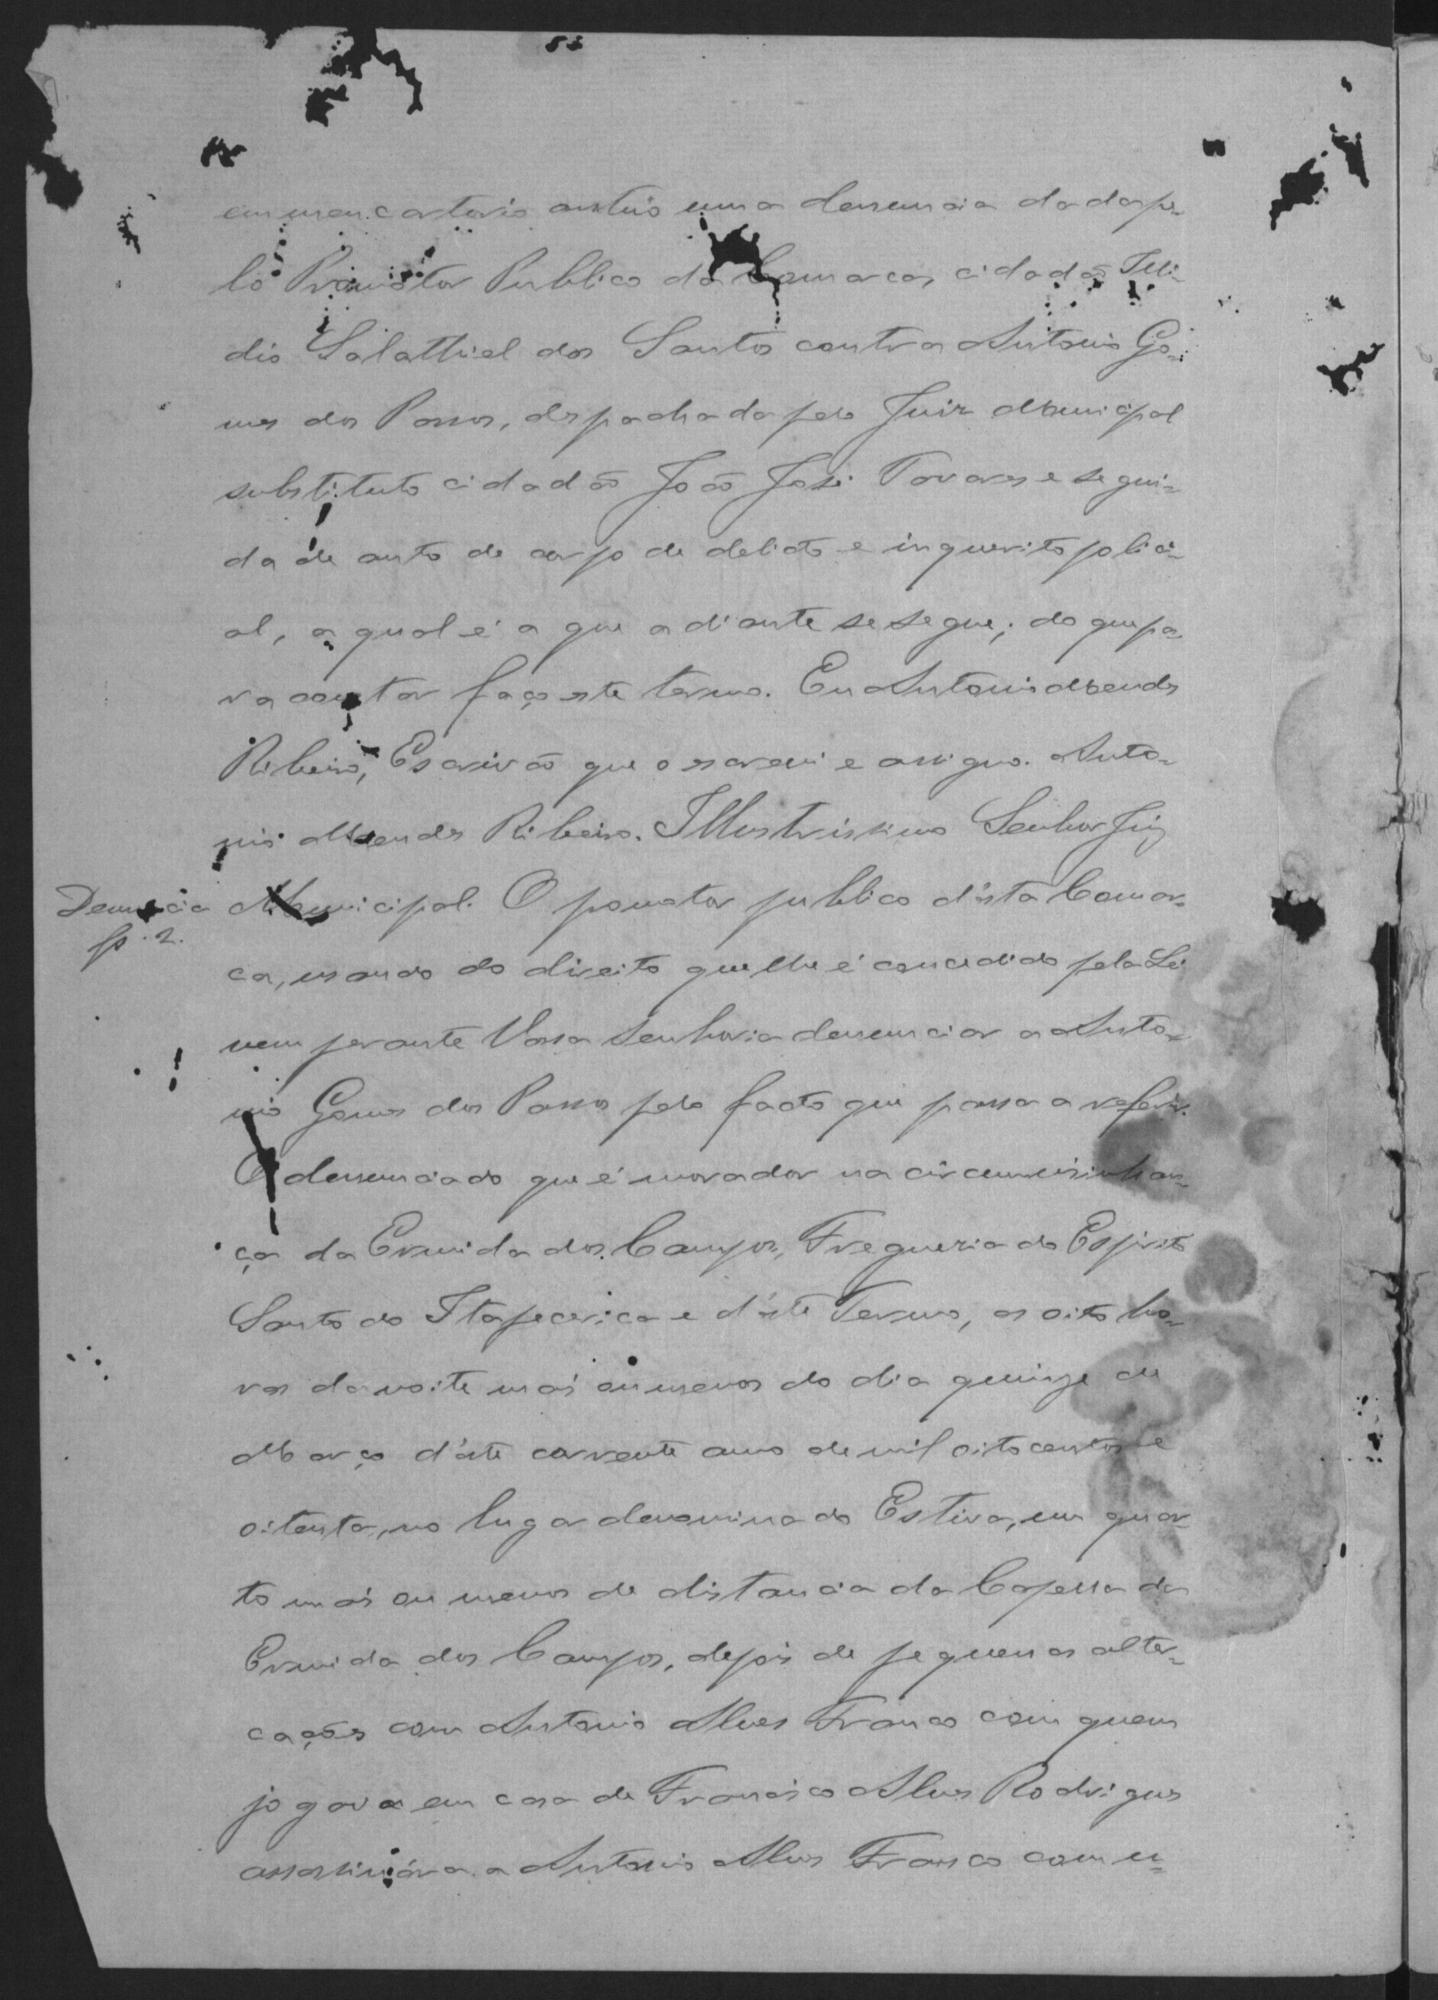 em meu cartorio autuo uma denuncia dada pe-
lo Promotor Publico da Comarca, cidadão
dio Salathiel dos Santos contra Antonio Go-
mes dos Passos, despachada pelo Juiz Municipal
substituto cidadão João José Tavares e segui-
da de auto de corpo de delicto e inquerito polici-
al, a qual é a que adiante se segue; do que pa-
ra constar faço este termo. Eu Antonio Mendes
Ribeiro, Escrivão que o escrevi e assigno. Anto-
nio Mendes Ribeiro. Illustrissimo Senhor Juiz
Denuncia
fs. 2.
Municipal. O pomotor publico d'esta Comar-
ca, usando do direito que lhe é concedido pela Lei
vem perante Vossa Senhoria denunciar a Anto-
nio Gomes dos Passos pelo facto que passa a referir.
O denunciado que é morador na circumvisinhan-
ça da Ermida dos Campos, Freguezia do Espirito
Santo do Itapecerica e d'este Termo, as oito ho-
ras da noite mais ou menos do dia quinze de
Março d'este corrente anno de mil oitocentos e
oitenta, no lugar denominado Estiva, um quar-
to mais ou menos de distancia da Capella da
Ermida dos Campos, depois de pequenas alter-
cações com Antonio Alves Franco com quem
jogava em casa de Francisco Alves Rodrigues
assassinára a Antonio Alves Franco com u-